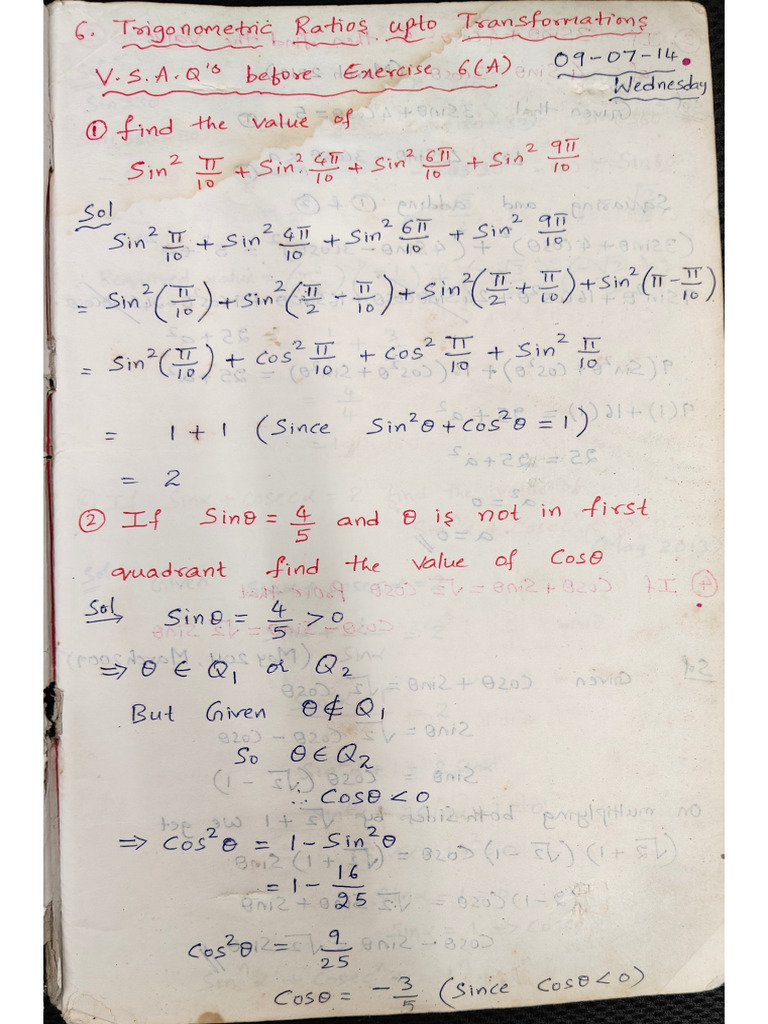 6. Trigonometric Ratios upto Transformations
V.S.A.Q's before Exercise 6(A)
09-07-14.
Wednesday
① find the value of
Sin² π/10 + Sin² 4π/10 + Sin² 6π/10 + Sin² 9π/10
Sol
Sin² π/10 + Sin² 4π/10 + Sin² 6π/10 + Sin² 9π/10
= Sin²(π/10) + Sin²(π/2 - π/10) + Sin²(π/2 + π/10) + Sin²(π - π/10)
= Sin²(π/10) + Cos² π/10 + Cos² π/10 + Sin² π/10
= 1 + 1 (Since Sin²θ + Cos²θ = 1)
= 2
② If Sinθ = 4/5 and θ is not in first
quadrant find the value of Cosθ
Sol Sinθ = 4/5 > 0
⇒ θ ∈ Q₁ or Q₂
But Given θ ∉ Q₁
So θ ∈ Q₂
∴ Cosθ < 0
⇒ Cos²θ = 1 - Sin²θ
= 1 - 16/25
Cos²θ = 9/25
Cosθ = -3/5 (Since Cosθ < 0)